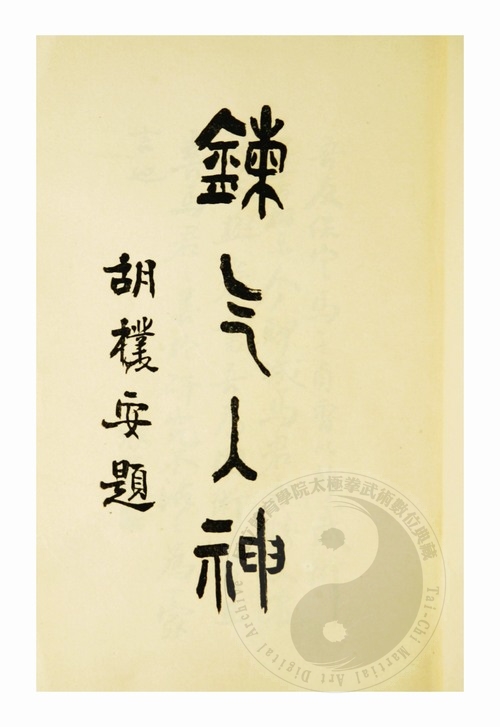 鍊气入神
胡樸安題
育學院太極拳武術數位典藏
Tai-Chi Martial Art Digital Archive